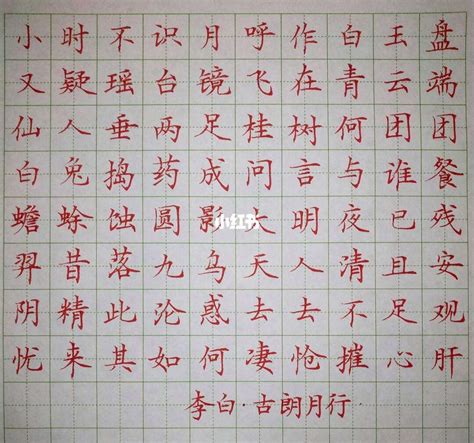 小时不识月呼作白玉盘
又疑瑶台镜飞在青云端
仙人垂两足桂树何团团
白兔捣药成问言与谁餐
蟾蜍蚀圆影大明夜已残
小红书
羿昔落九乌天人清且安
阴精此沦惑去去不足观
忧来其如何凄怆摧心肝
李白·古朗月行